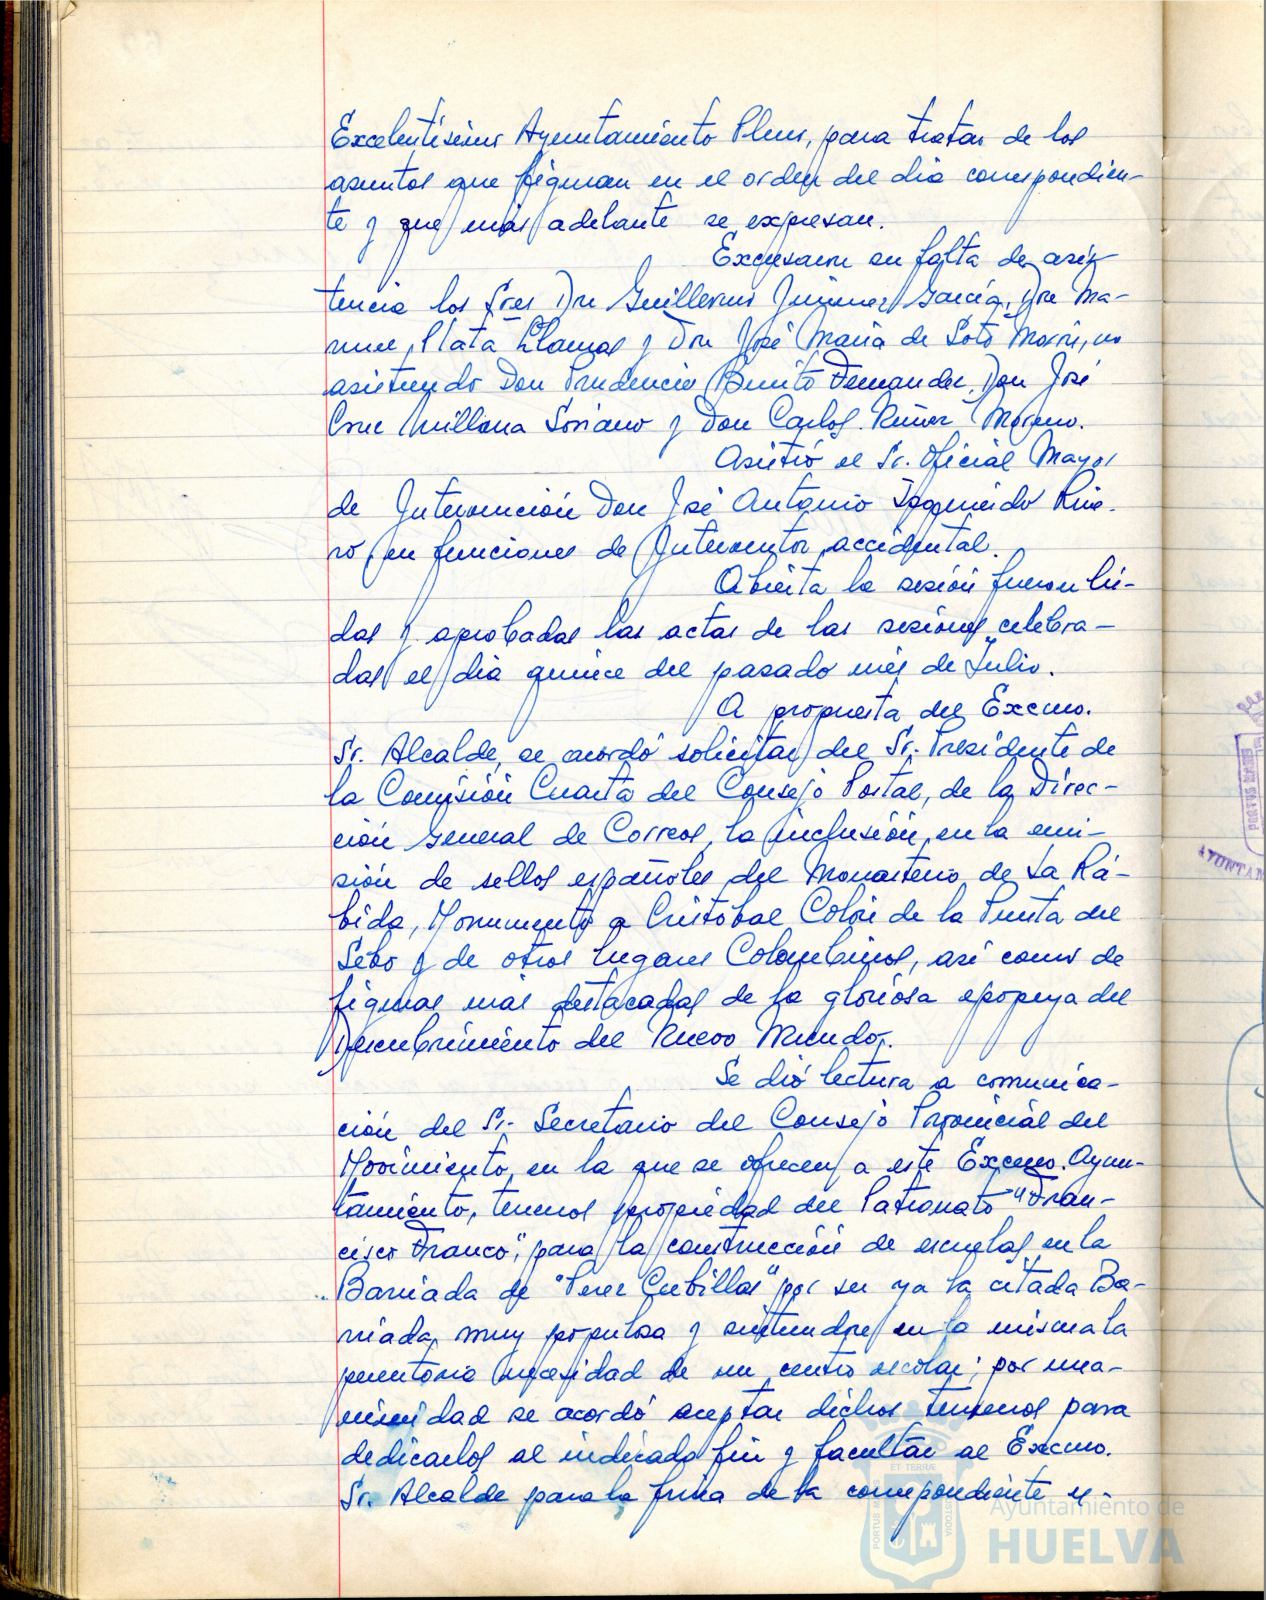 Excelentísimo Ayuntamiento Pleno, para tratar de los
asuntos que figuran en el orden del dia correspondien-
te y que más adelante se expresan.
Excusaron su falta de asis-
tencia los Sres Don Guillermo Jimenez García, Don Ma-
nuel Plata Llamas y Don José María de Soto Morón, no
asistiendo Don Prudencio Benito Fernandez, Don José
Cruz Millana Soriano y Don Carlos Núñez Moreno.
Asistió el Sr. Oficial Mayor
de Intervención Don José Antonio Izquierdo Rive-
ro, en funciones de Interventor accidental.
Abierta la sesión fueron leí-
das y aprobadas las actas de las sesiones celebra-
das el dia quince del pasado mes de Julio.
A propuesta del Excmo.
Sr. Alcalde, se acordó solicitar del Sr. Presidente de
la Comisión Cuarta del Consejo Postal, de la Direc-
ción General de Correos, la inclusión, en la emi-
sión de sellos españoles, del Monasterio de La Rá-
bida, Monumento a Cristóbal Colón de la Punta del
Sebo y de otros lugares Colombinos, así como de
figuras más destacadas de la gloriosa epopeya del
Descubrimiento del Nuevo Mundo.
Se dió lectura a comunica-
ción del Sr. Secretario del Consejo Provincial del
Movimiento, en la que se ofrecen, a este Excmo. Ayun-
tamiento, terrenos propiedad del Patronato "Fran-
cisco Franco", para la construcción de escuelas, en la
Barriada de "Perez Cubillas" por ser ya la citada Ba-
rriada, muy populosa y sentirse en la misma la
perentoria necesidad de un centro escolar; por una-
nimidad se acordó aceptar dichos terrenos para
dedicarlos al indicado fin y facultar al Excmo.
Sr. Alcalde para la firma de la correspondiente es-
ET TERRÆ
PORTUS MARIS
CUSTODIA
Ayuntamiento de
HUELVA
PORTUS MARIS
AYUNTAM